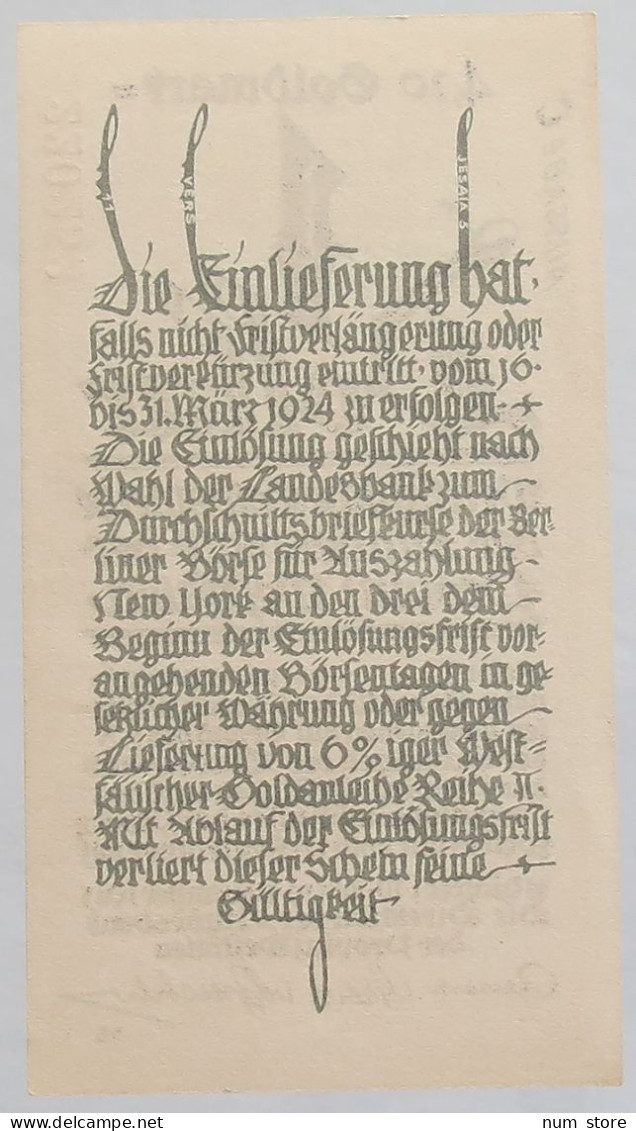 4,20 Goldmark
11
VERS
JESAIA 5
Die Einlieferung hat,
falls nicht Fristverlängerung oder
Fristverkürzung eintritt, vom 16.
bis 31. März 1924 zu erfolgen.
Die Einlösung geschieht nach
Wahl der Landesbank zum
Durchschnittsbriefkurse der Ber-
liner Börse für Auszahlung
New York an den drei dem
Beginn der Einlösungsfrist vor-
angehenden Börsentagen in ge-
setzlicher Währung oder gegen
Lieferung von 6%iger West-
fälischer Goldanleihe Reihe II.
Mit Ablauf der Einlösungsfrist
verliert dieser Schein seine
Gültigkeit
num store